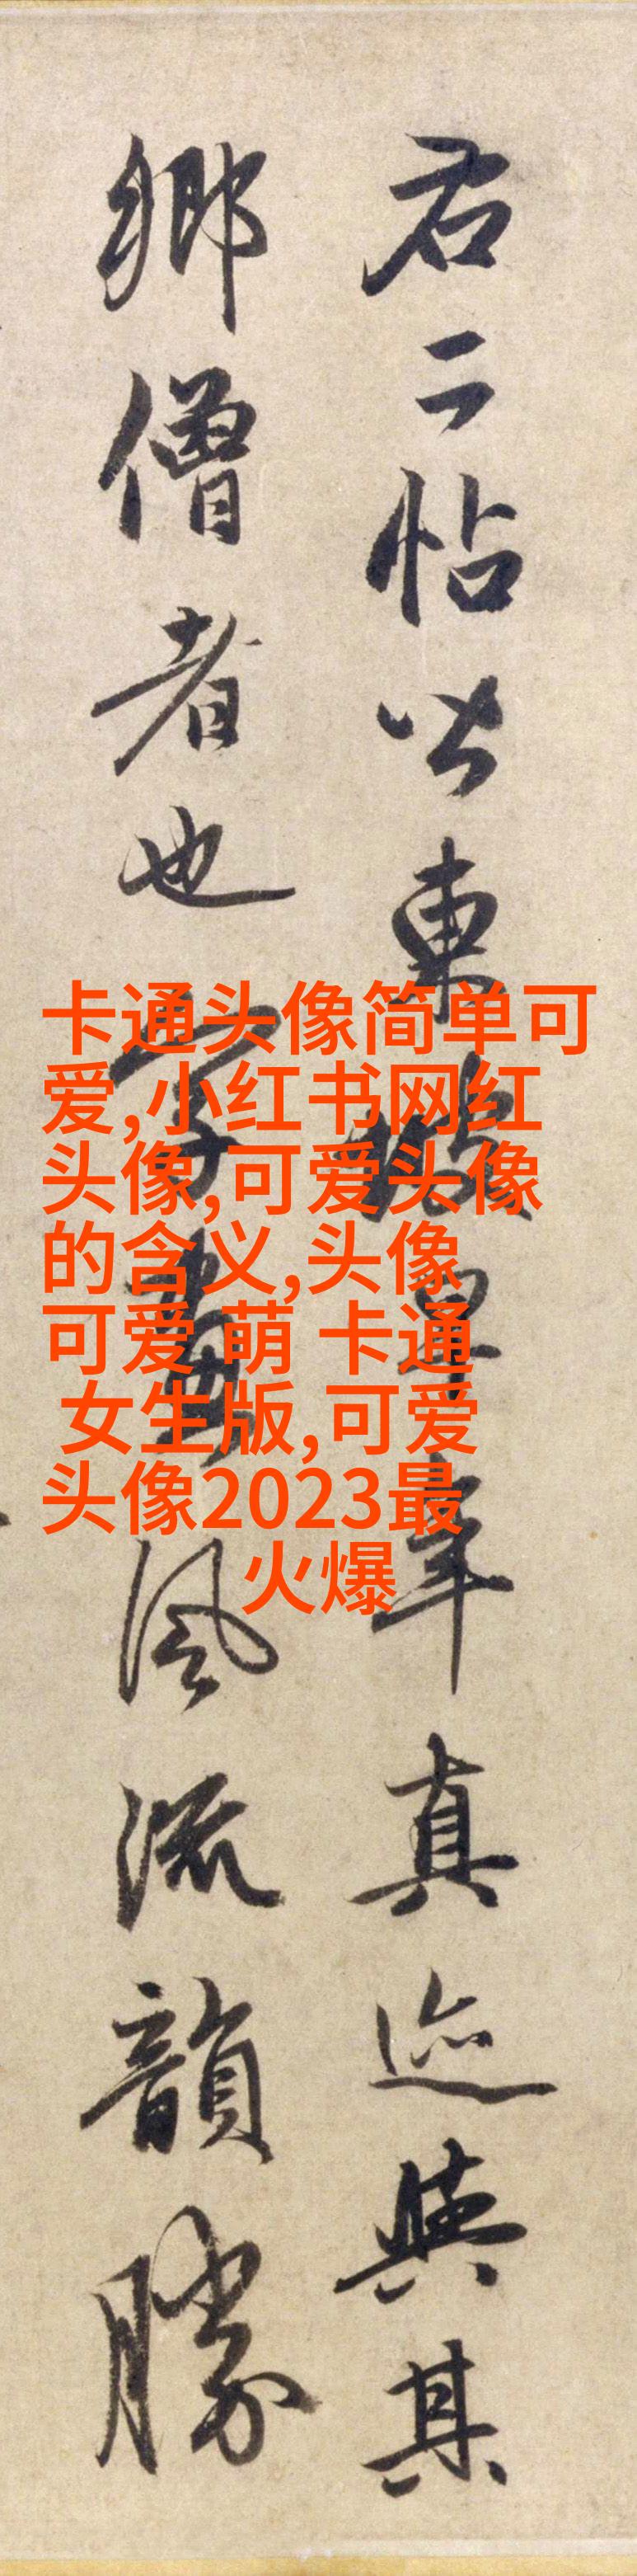 右二帖皆東坡早年真迹與其
鄉僧者也字畫風流韻勝
卡通头像简单可
爱,小红书网红
头像,可爱头像
的含义,头像
可爱 萌 卡通
女生版,可爱
头像2023最
火爆